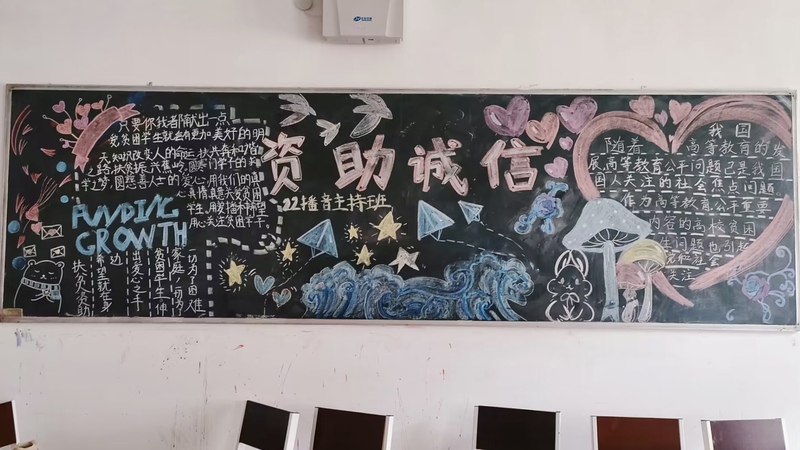 只要你我都献出一点
爱贫困学生就会有更加美好的明
天知识改变人的命运,扶贫春和八
之路,扶贫振济寒岭,圆寒门学子的
学之梦,圆慈善人士的爱心,用我们的
真情温暖关爱贫困
学生,用爱播种希望
用心关注贫困学子
FUNDING
GROWTH
一切为了困难
家庭一切为
贫困学生伸
出爱心之手
边
希望就在身
扶贫资助
资助诚信
22播音主持班
随着我国
高等教育的发
展高等教育公平问题已是我国
国人关注的社会焦点问题
作为高等教育公平重要
内容的高校贫困
生问题也引起
党和社会
关注